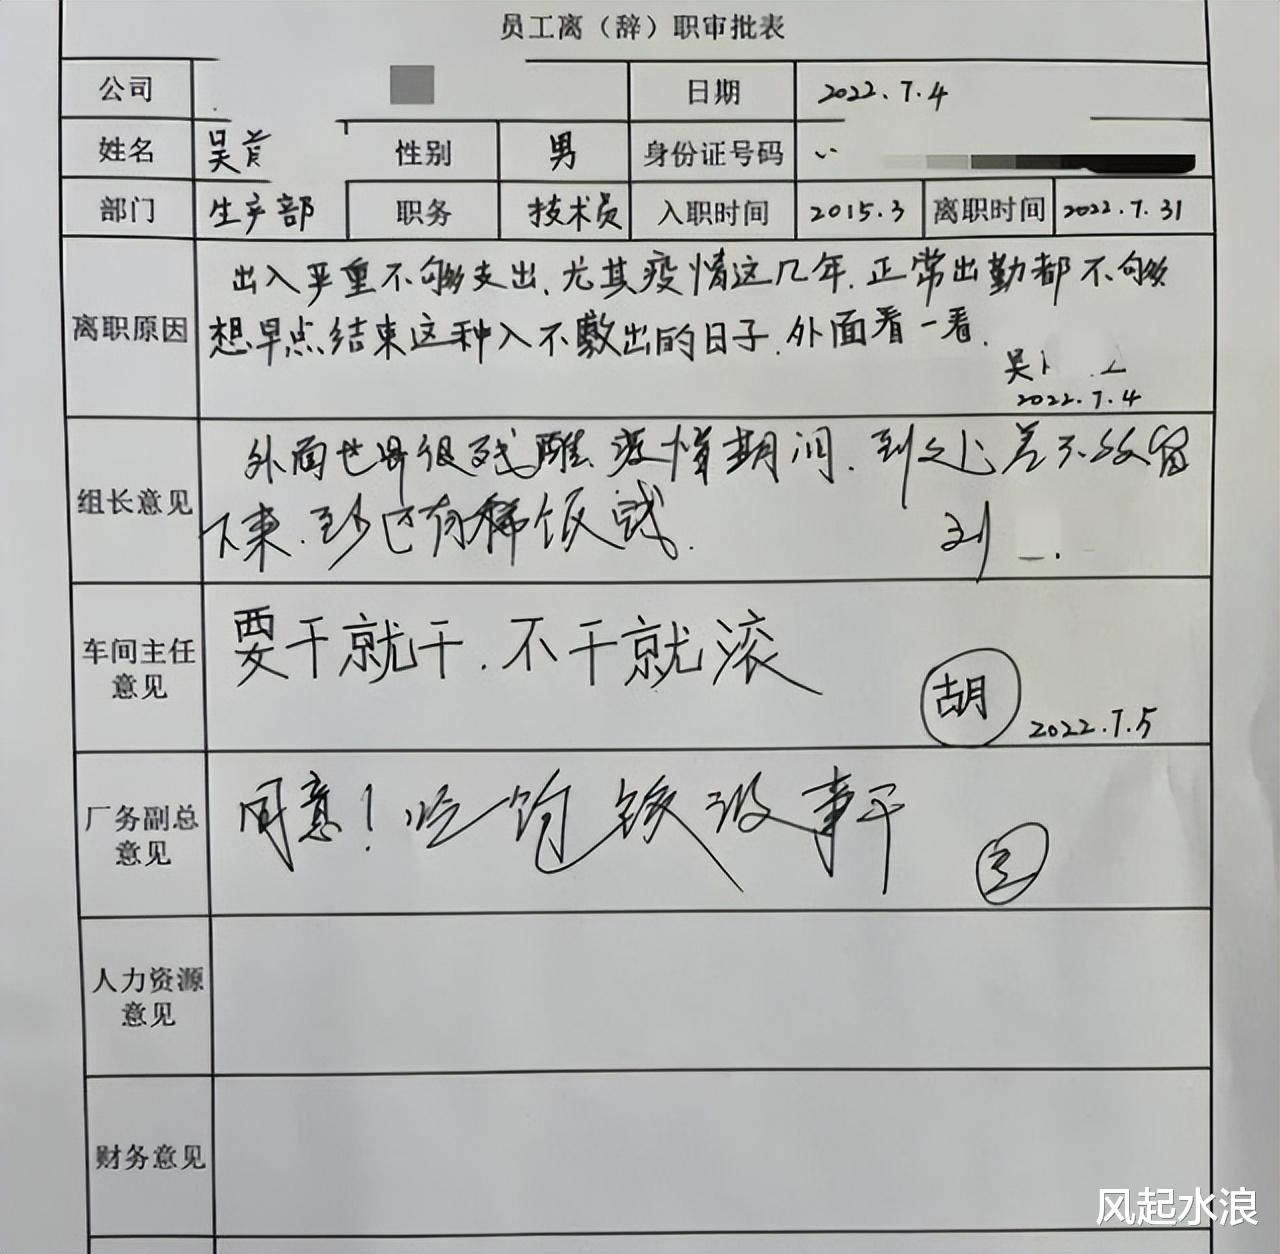 员工离（辞）职审批表
公司 日期 2022.7.4
姓名 吴 性别 男 身份证号码
部门 生产部 职务 技术员 入职时间 2015.3 离职时间 2022.7.31
离职原因
出入严重不够支出、尤其疫情这几年、正常出勤都不够
想早点结束这种入不敷出的日子、外面看一看、
吴
2022.7.4
组长意见
外面世界很残酷、疫情期间、到处差不多留
下来、至少还有稀饭钱、
刘
车间主任
意见
要干就干、不干就滚
胡 2022.7.5
厂务副总
意见
同意！吃饱饿没事干
人力资源
意见
财务意见
风起水浪